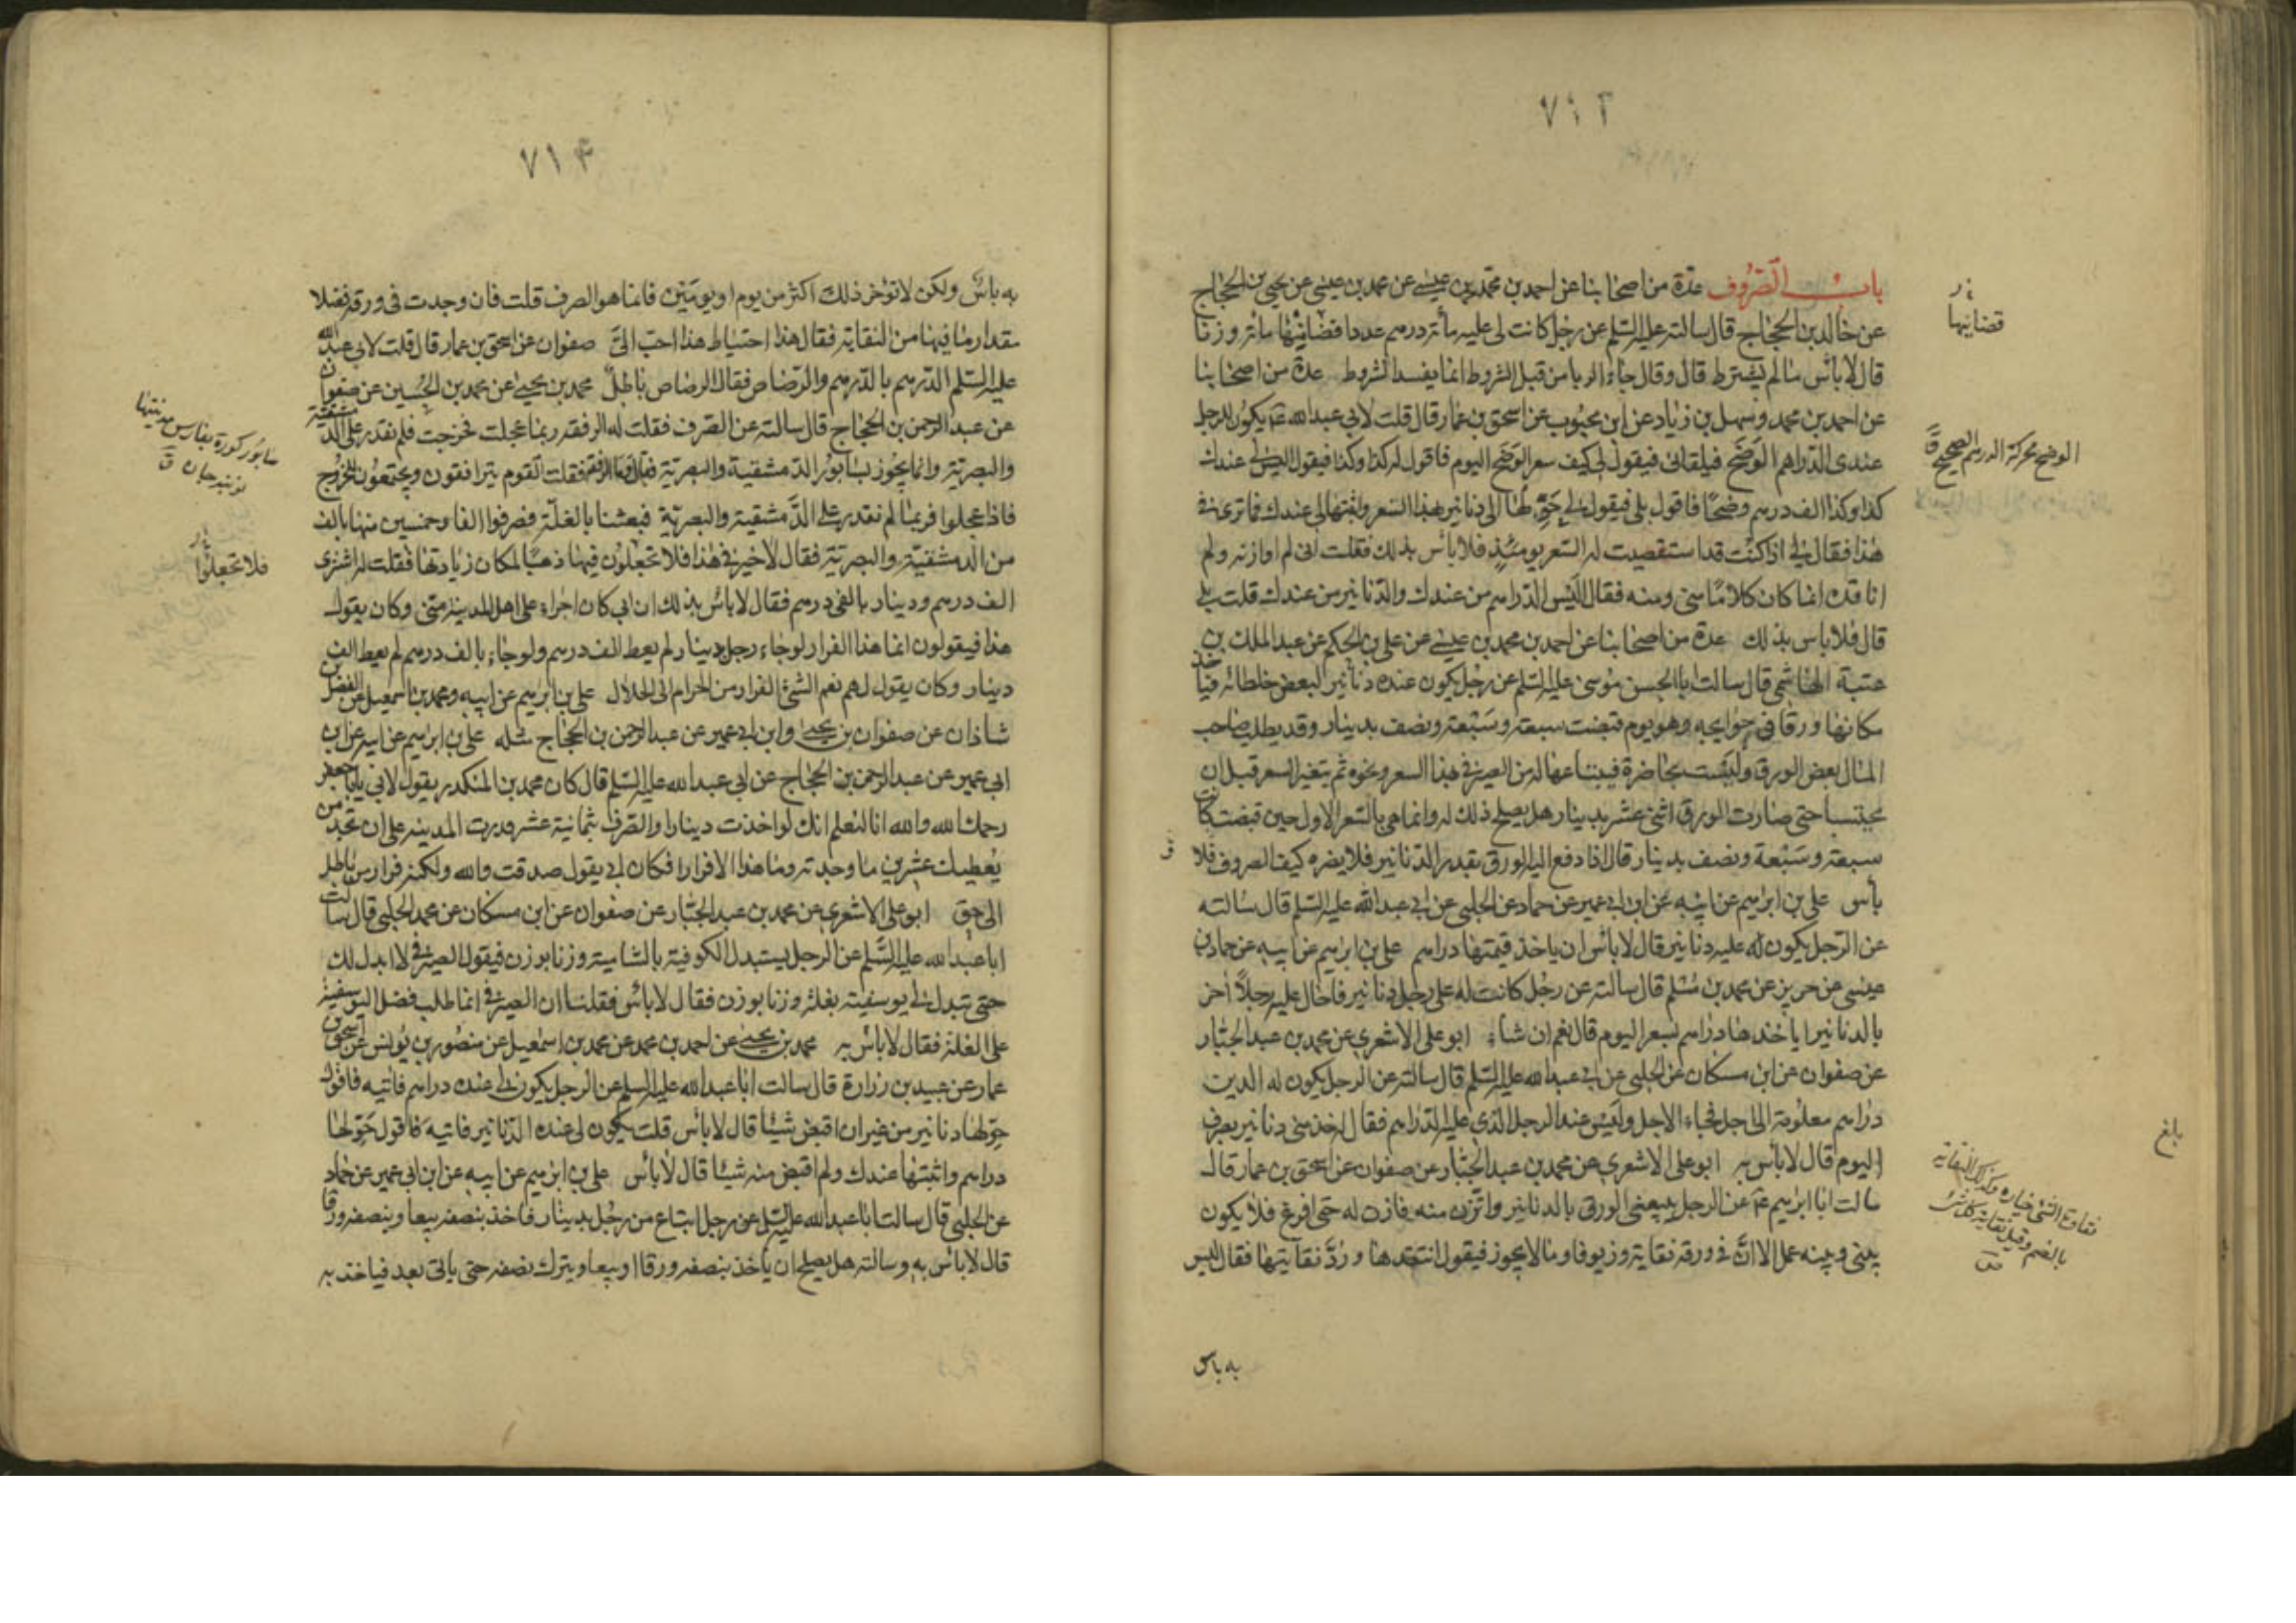 ٧١٣
باب الصروف عدة من اصحابنا عن احمد بن محمد بن عيسى عن محمد بن عيسى عن يحيى بن الحجاج
عن خالد بن الحجاج قال سالته عليه السلم عن رجل كانت لى عليه مأة درهم عددا قضانيها مائة وزنا
قال لا بأس ما لم يشترط قال وقال جاء الربا من قبل الشروط انما يفسد الشروط عدة من اصحابنا
عن احمد بن محمد وسهل بن زياد عن ابن محبوب عن اسحق بن عمار قال قلت لابى عبد الله ع يكون للرجل
عندى الدراهم الوضح فيلقانى فيقول لى كيف سعر الوضح اليوم فاقول له كذا وكذا فيقول اليس لى عندك
كذا وكذا الف درهم وضحا فاقول بلى فيقول لى حولها الى دنانير بهذا السعر واثبتها لى عندك فما ترى فى
هذا فقال لى اذا كنت قد استقصيت له السعر يومئذ فلا باس بذلك فقلت انى لم اوازنه ولم
اناقده انما كان كلاما منى ومنه فقال اليس الدراهم من عندك والدنانير من عندك قلت بلى
قال فلا باس بذلك عدة من اصحابنا عن احمد بن محمد بن عيسى عن على بن الحكم عن عبد الملك بن
عتبة الهاشمى قال سالت ابا الحسن موسى عليه السلم عن رجل يكون عنده دنانير لبعض خلطائه فياخذ
مكانها ورقا فى حوايجه وهو يوم قبضت سبعة وسبعة ونصف بدينار وقد يطلب صاحب
المال بعض الورق وليست بحاضرة فيبتاعها له من الصيرفى بهذا السعر ونحوه ثم يتغير السعر قبل ان
يحتسبا حتى صارت الورق اثنى عشر بدينار هل يصلح ذلك له وانما هى بالسعر الاول حين قبضت كانت
سبعة وسبعة ونصف بدينار قال اذا دفع اليه الورق بقدر الدنانير فلا يضره كيف الصروف فلا
بأس على بن ابراهيم عن ابيه عن ابن ابى عمير عن حماد عن الحلبى عن ابى عبد الله عليه السلم قال سالته
عن الرجل يكون له عليه دنانير قال لا بأس ان ياخذ قيمتها دراهم على بن ابراهيم عن ابيه عن حماد بن
عيسى عن حريز عن محمد بن مسلم قال سالته عن رجل كانت له على رجل دنانير فاحال عليه رجلا آخر
بالدنانير اياخذها دراهم بسعر اليوم قال نعم ان شاء ابو على الاشعرى عن محمد بن عبد الجبار
عن صفوان عن ابن مسكان عن الحلبى عن ابى عبد الله عليه السلم قال سالته عن الرجل يكون له الدين
دراهم معلومة الى اجل فجاء الاجل وليس عند الرجل الذى عليه الدراهم فقال له خذ منى دنانير بصرف
اليوم قال لا بأس به ابو على الاشعرى عن محمد بن عبد الجبار عن صفوان عن اسحق بن عمار قال
سالت ابا ابراهيم ع عن الرجل يبيعنى الورق بالدنانير واتزن منه فازن له حتى افرغ فلا يكون
بينى وبينه عمل الا ان فى ورقه نفاية وزيوفا وما لا يجوز فيقول انتقدها ورد نفايتها فقال ليس
به باس
قضانيها
الوضح محركة الدرهم الصحيح ق
بلغ
٧١٤
به باس ولكن لا تؤخر ذلك اكثر من يوم او يومين فانما هو الصرف قلت فان وجدت فى ورقه فضلا
مقدار ما فيها من النفاية فقال هذا احتياط هذا احب الى صفوان عن اسحق بن عمار قال قلت لابى عبد الله
عليه السلم الدرهم بالدرهم والرصاص فقال الرصاص باطل محمد بن يحيى عن محمد بن الحسين عن صفوان
عن عبد الرحمن بن الحجاج قال سالته عن الصرف فقلت له الرفقة ربما عجلت فخرجت فلم نقدر على الدمشقية
والبصرية وانما يجوز بسابور الدمشقية والبصرية فقال وما الرفقة فقلت القوم يترافقون ويجتمعون للخروج
فاذا عجلوا فربما لم نقدر على الدمشقية والبصرية فبعثنا بالغلة فصرفوا الفا وخمسين منها بالف
من الدمشقية والبصرية فقال لا خير فى هذا فلا تجعلون فيها ذهبا لمكان زيادتها فقلت له اشترى
الف درهم ودينار بالفى درهم فقال لا بأس بذلك ان ابى كان اجراء على اهل المدينة منى وكان يقول
هذا فيقولون انما هذا الفرار لو جاء رجل بدينار لم يعط الف درهم ولو جاء بالف درهم لم يعط الف
دينار وكان يقول لهم نعم الشئ الفرار من الحرام الى الحلال على بن ابراهيم عن ابيه ومحمد بن اسمعيل عن الفضل بن
شاذان عن صفوان بن يحيى وابن ابى عمير عن عبد الرحمن بن الحجاج مثله على بن ابراهيم عن ابيه عن ابن
ابى عمير عن عبد الرحمن بن الحجاج عن ابى عبد الله عليه السلم قال كان محمد بن المنكدر يقول لابى يا ابا جعفر
رحمك الله والله انا لنعلم انك لو اخذت دينارا والصرف بثمانية عشر فدرت المدينة على ان تجد من
يعطيك عشرين ما وجدته وما هذا الا فرارا فكان ابى يقول صدقت والله ولكنه فرار من باطل
الى حق ابو على الاشعرى عن محمد بن عبد الجبار عن صفوان عن ابن مسكان عن محمد الحلبى قال سالت
ابا عبد الله عليه السلم عن الرجل يستبدل الكوفية بالشامية وزنا بوزن فيقول الصيرفى لا ابدل لك
حتى تبدل لى يوسفية بغلة وزنا بوزن فقال لا بأس فقلنا ان الصيرفى انما طلب فضل اليوسفية
على الغلة فقال لا بأس به محمد بن يحيى عن احمد بن محمد عن محمد بن اسمعيل عن منصور بن يونس عن اسحق بن
عمار عن عبيد بن زرارة قال سالت ابا عبد الله عليه السلم عن الرجل يكون لى عنده دراهم فاتيه فاقول
حولها دنانير من غير ان اقبض شيئا قال لا بأس قلت يكون لى عنده الدنانير فاتيه فاقول حولها
دراهم واثبتها عندك ولم اقبض منه شيئا قال لا بأس على بن ابراهيم عن ابيه عن ابن ابى عمير عن حماد
عن الحلبى قال سالت ابا عبد الله عليه السلم عن رجل ابتاع من رجل بدينار فاخذ بنصفه بيعا وبنصفه ورقا
قال لا بأس به وسالته هل يصلح ان ياخذ بنصفه ورقا او بيعا ويترك نصفه حتى ياتى بعد فياخذ به
سابور كورة بفارس مدينتها
نوبندجان ق
فلا تجعلوا